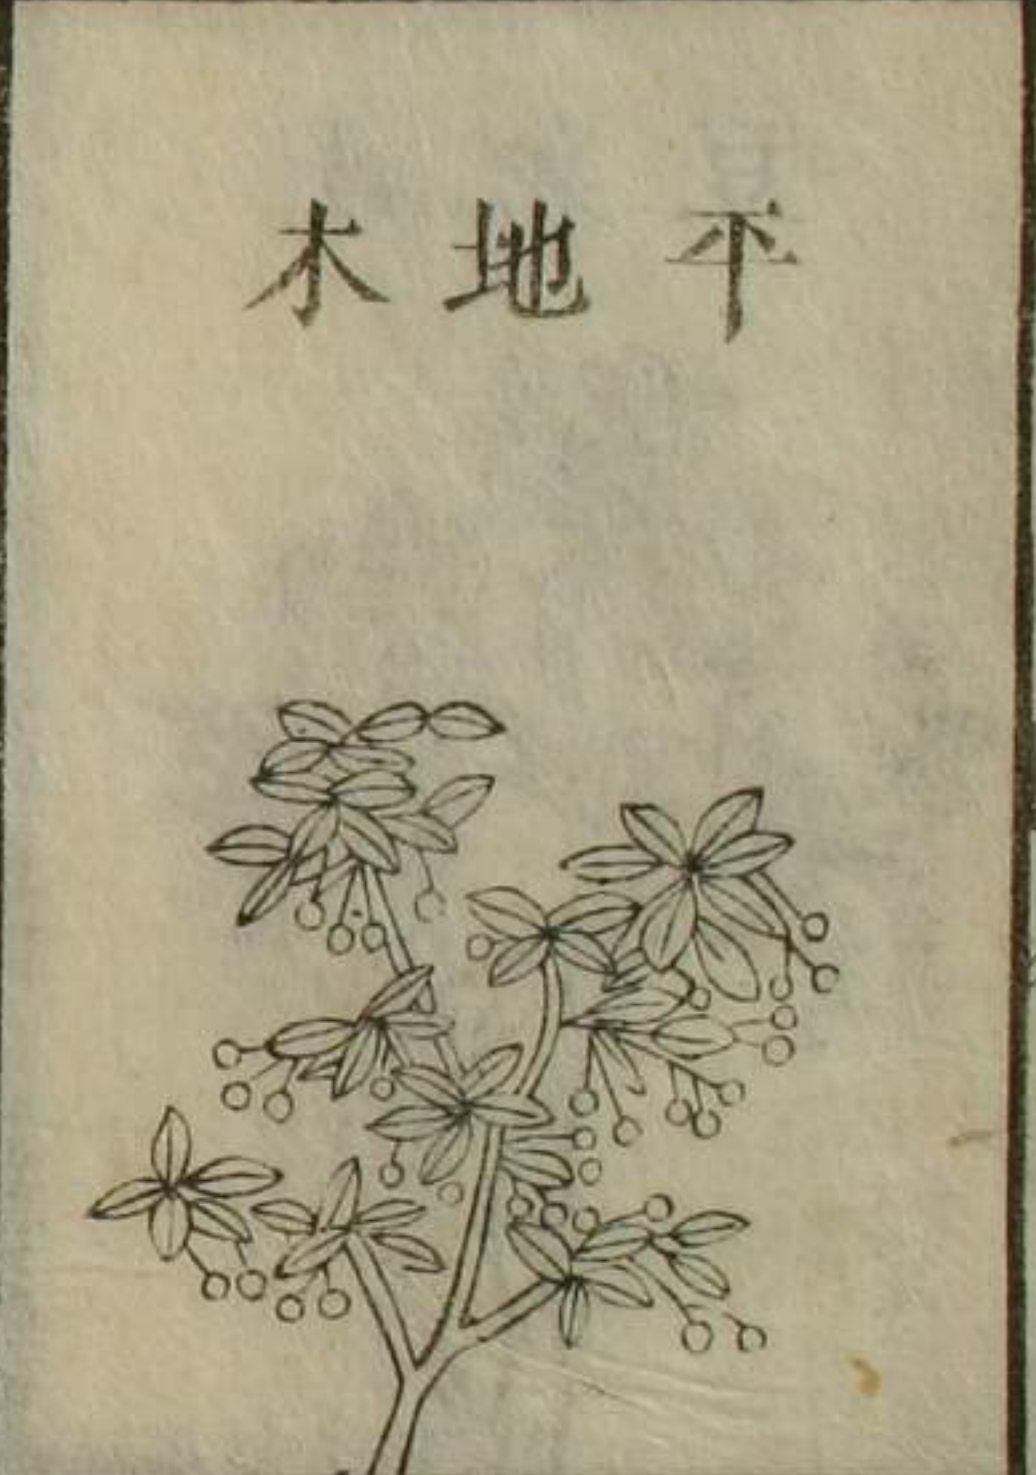 平地木